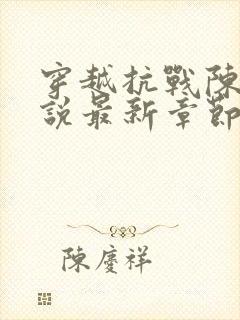 穿越抗戰陳
說最新章節
陳慶祥